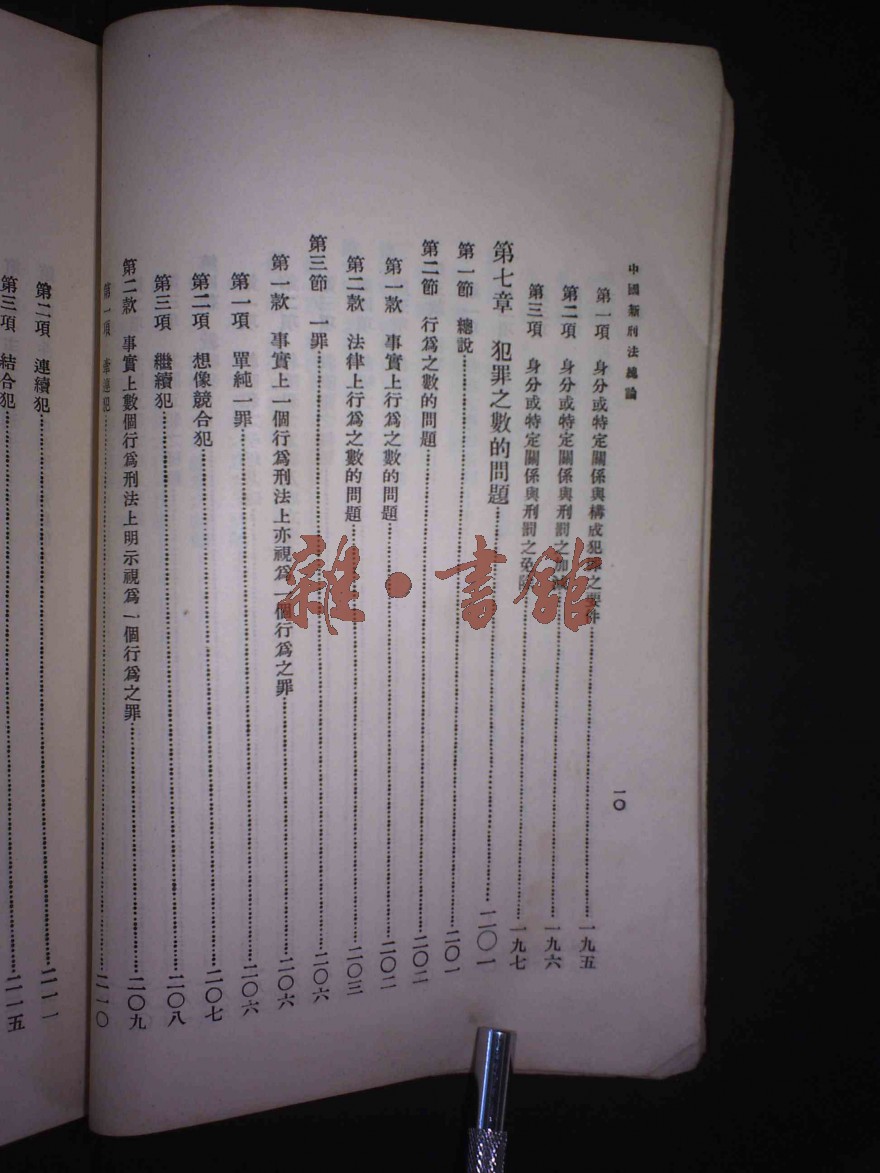 中國新刑法總論
一〇
第一項 身分或特定關係與構成犯罪之要件 一九五
第二項 身分或特定關係與刑罰之加減 一九六
第三項 身分或特定關係與刑罰之免除 一九七
第七章 犯罪之數的問題 二〇一
第一節 總說 二〇一
第二節 行爲之數的問題 二〇二
第一款 事實上行爲之數的問題 二〇二
第二款 法律上行爲之數的問題 二〇三
第三節 一罪 二〇六
第一款 事實上一個行爲刑法上亦視爲一個行爲之罪 二〇六
第一項 單純一罪 二〇六
第二項 想像競合犯 二〇七
第三項 繼續犯 二〇八
第二款 事實上數個行爲刑法上明示視爲一個行爲之罪 二〇九
第一項 牽連犯 二一〇
第二項 連續犯 二一一
第三項 結合犯 二一五
雜·書館